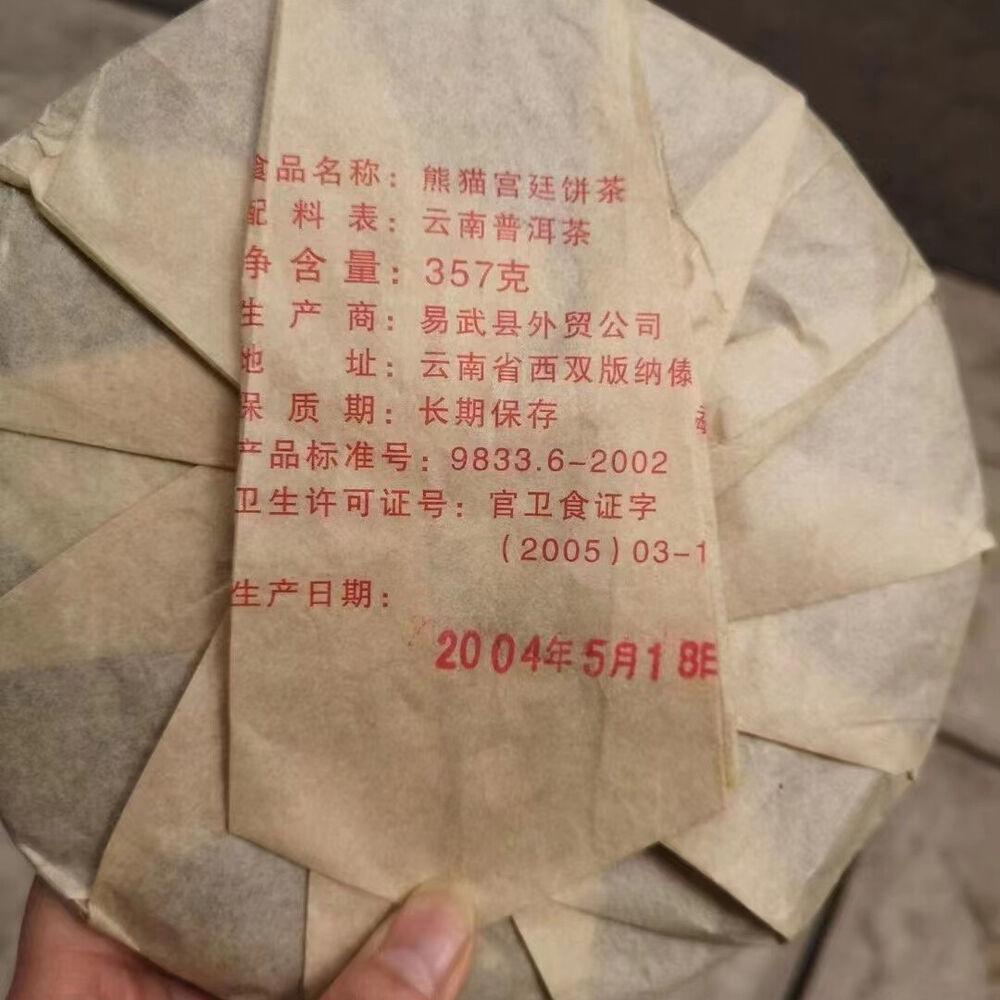 食品名称：熊猫宫廷饼茶
配料表：云南普洱茶
净含量：357克
生产商：易武县外贸公司
地址：云南省西双版纳傣
保质期：长期保存
产品标准号：9833.6-2002
卫生许可证号：官卫食证字
（2005）03-1
生产日期：
2004年5月18日